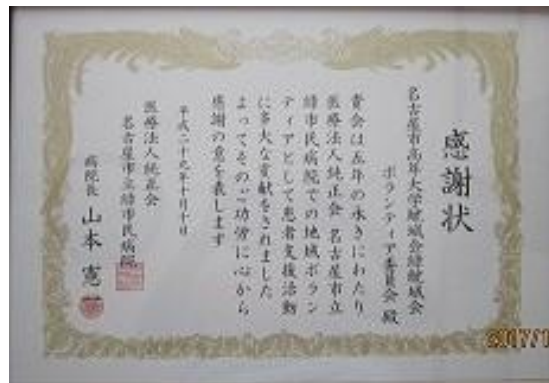 感謝状
名古屋市高年大学鯱城会緑鯱城会
ボランティア委員会 殿
貴会は五年の永きにわたり
医療法人純正会 名古屋市立
緑市民病院での地域ボラン
ティアとして患者支援活動
に多大な貢献をされました
よってそのご功労に心から
感謝の意を表します
平成二十九年十月十日
医療法人純正会
名古屋市立緑市民病院
病院長 山本 憲
2017/1